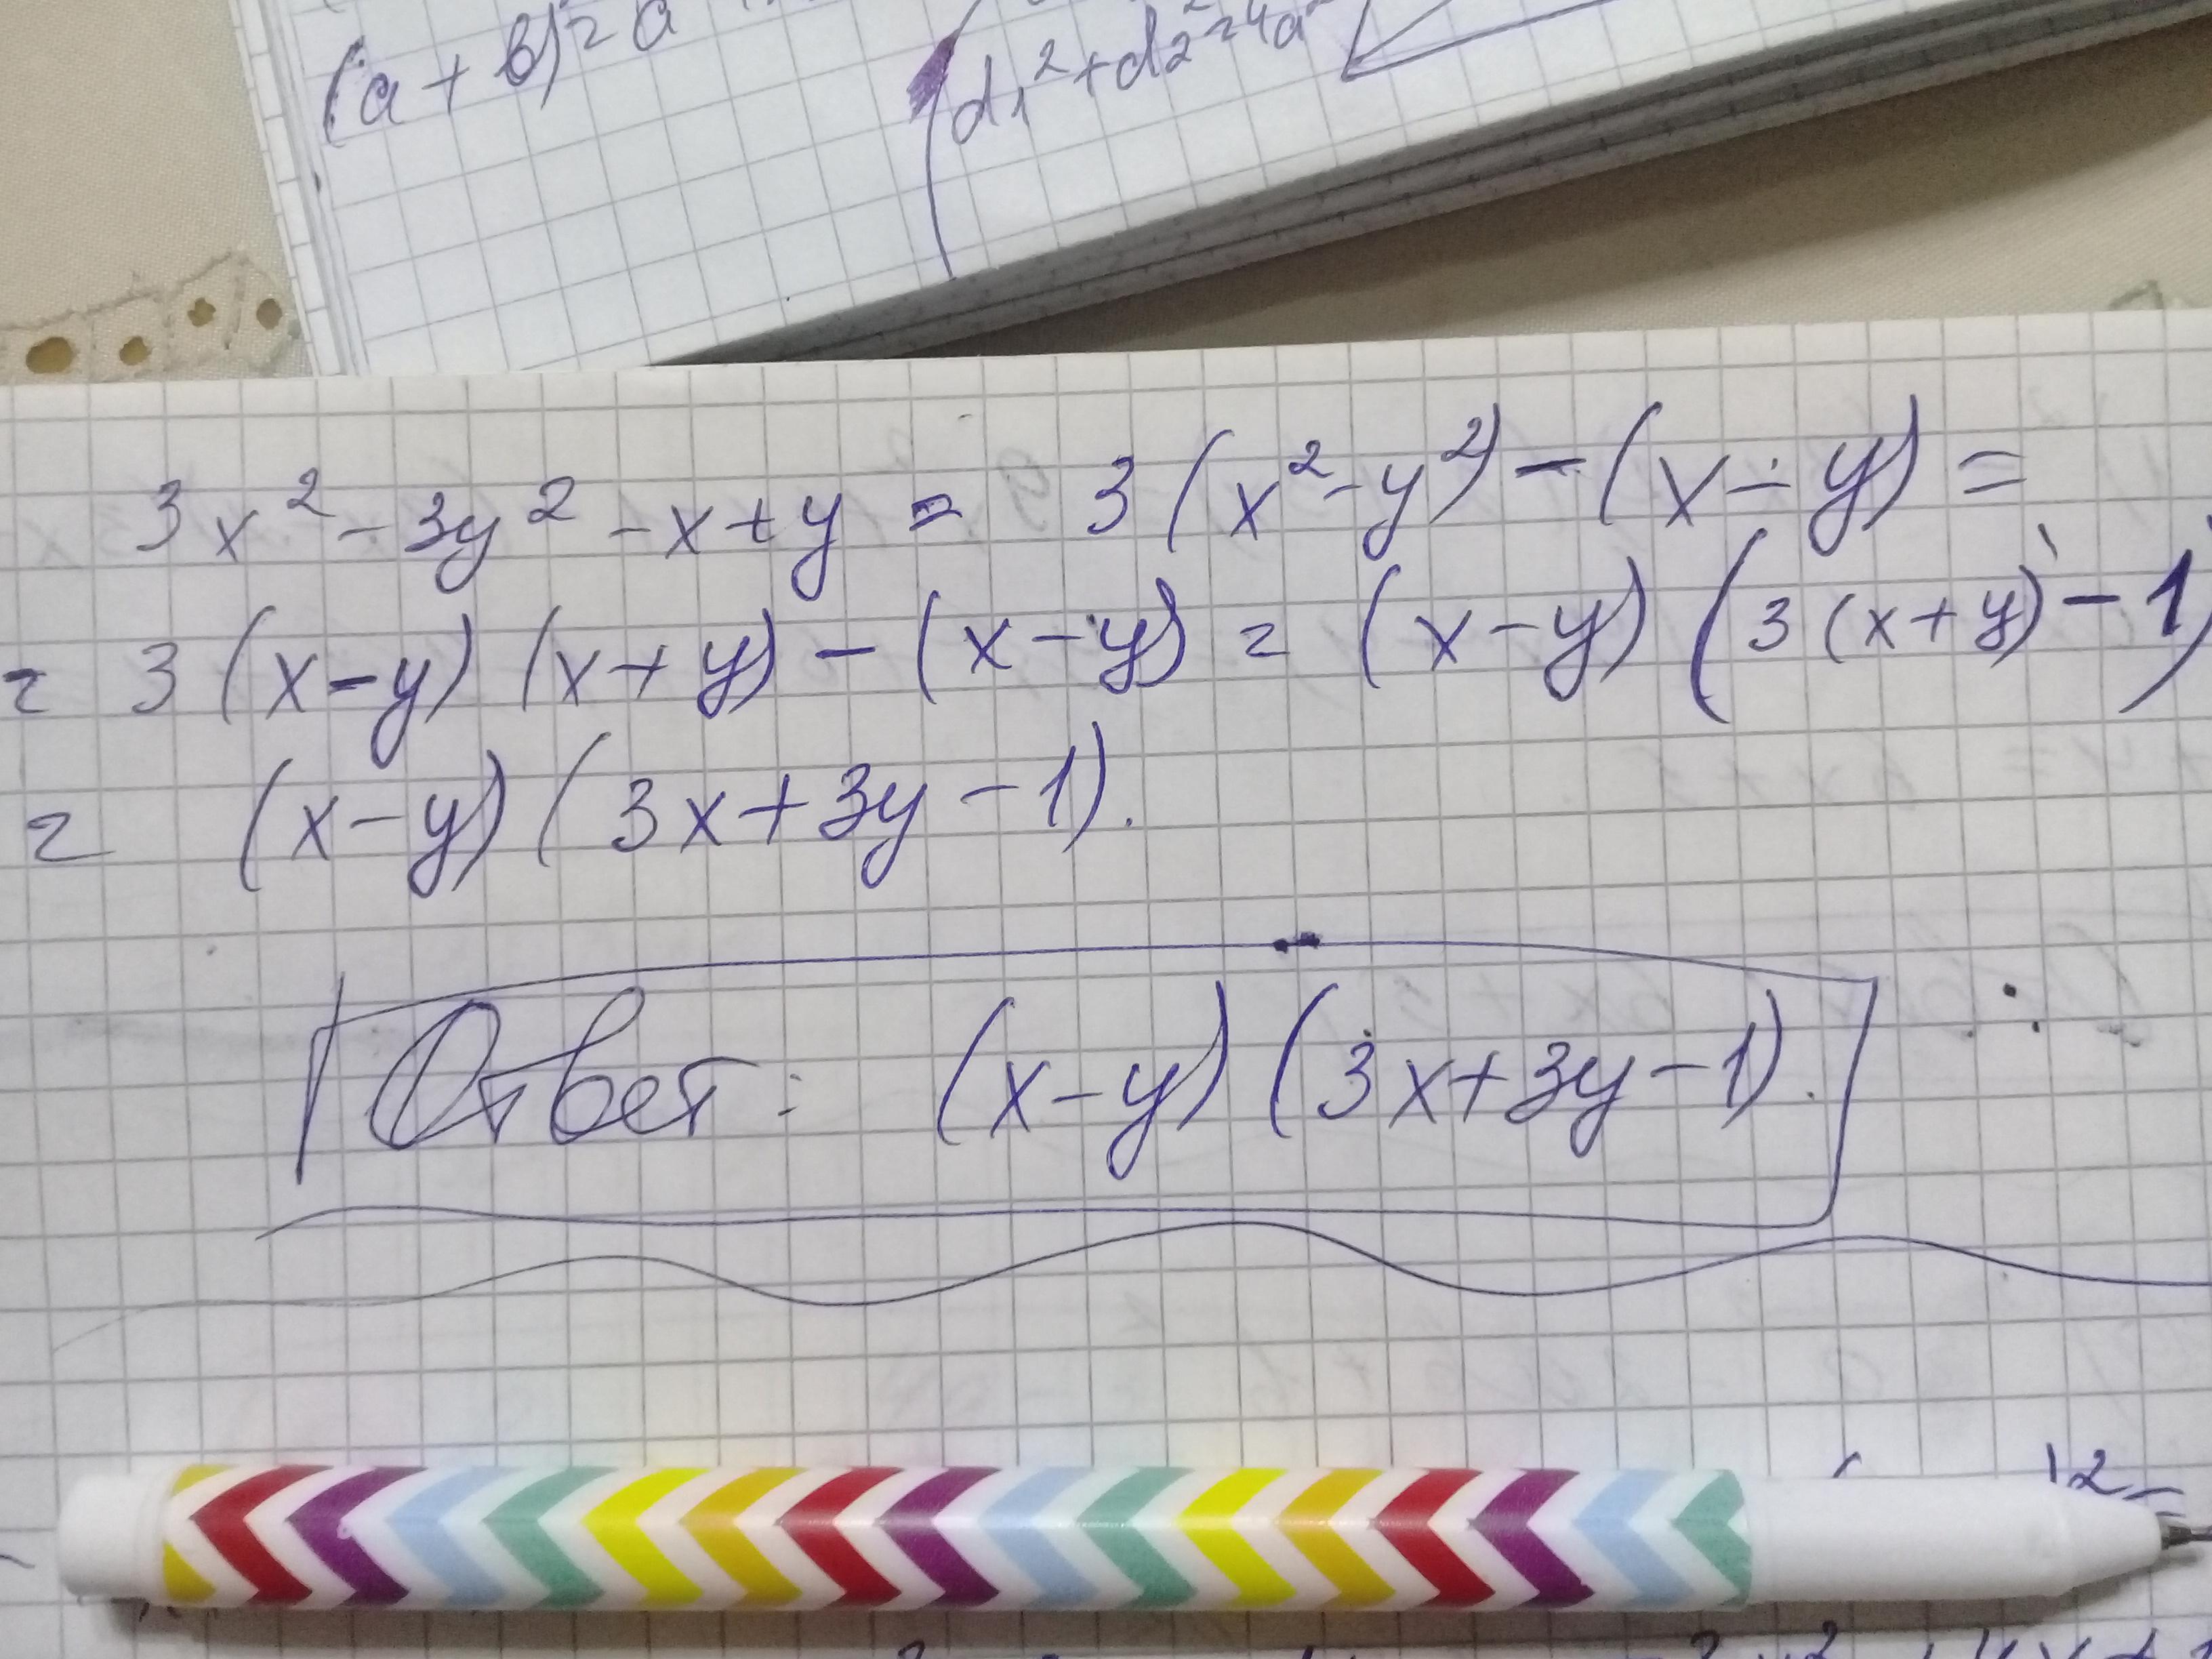 (a + b)² = a
d₁² + d₂² = 4a²
3x² - 3y² - x + y = 3(x² - y²) - (x - y) =
= 3(x - y)(x + y) - (x - y) = (x - y)(3(x + y) - 1)
= (x - y)(3x + 3y - 1).
Ответ: (x - y)(3x + 3y - 1).